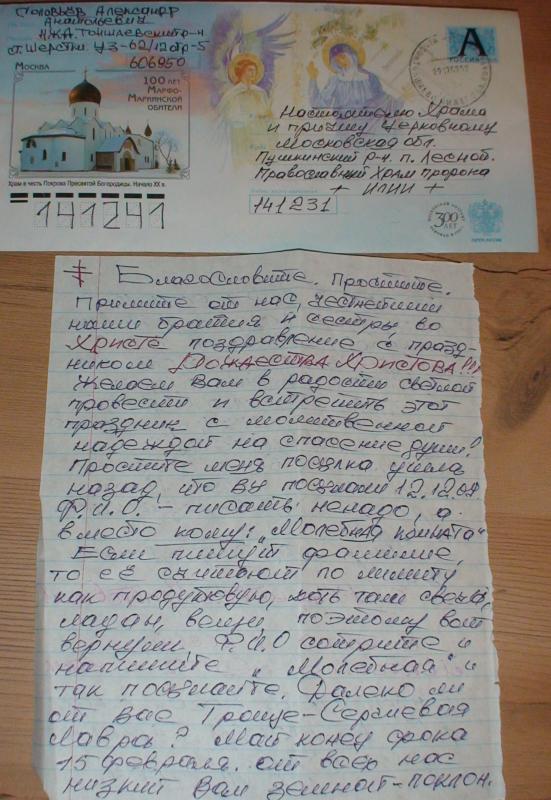 Соловьёв Александр
Анатольевич
Н.ЖД. Тоншаевский р-н
ст. Шерстки УЗ-62/12 отр-5
606950
МОСКВА
100 ЛЕТ
МАРФО-
МАРИИНСКОЙ
ОБИТЕЛИ
Храм в честь Покрова Пресвятой Богородицы. Начало XX в.
А
РОССИЯ
Настоятелю Храма
и причту Церковному
Московская обл.
Пушкинский р-н. п. Лесной.
Православный Храм пророка
+ ИЛИИ +
141231
141241
300 ЛЕТ
ПОЧТА РОССИИ
Благословите. Простите.
Примите от нас, честнейшии
наши братия и сестры во
Христе поздравление с празд-
ником Рождества Христова!!!
Желаем Вам в радости светлой
провести и встретить этот
праздник с молитвенной
надеждой на спасение души!
Простите меня посылка ушла
назад, что вы посылали 12.12.08
Ф.И.О. - писать ненадо, а
вместо кому: "Молебная комната"
Если пишут фамилие,
то её считают по лимиту
как продуктовую, хоть там свечи,
ладан, вещи поэтому вам
вернули, Ф.И.О сотрите и
напишите "Молебная" и
так посылайте. Далеко ли
от вас Троице-Сергиевая
Лавра? Мой конец срока
15 февраля. от всех нас
низкий Вам земной-поклон.